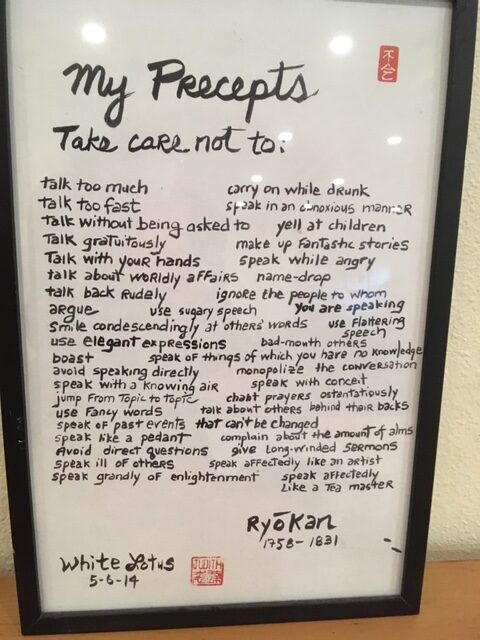 My Precepts
Take care not to:
talk too much carry on while drunk
talk too fast speak in an obnoxious manner
talk without being asked to yell at children
Talk gratuitously make up fantastic stories
Talk with your hands speak while angry
talk about worldly affairs name-drop
talk back rudely ignore the people to whom
argue use sugary speech you are speaking
smile condescendingly at others' words use flattering
speech
use elegant expressions bad-mouth others
boast speak of things of which you have no knowledge
avoid speaking directly monopolize the conversation
speak with a knowing air speak with conceit
jump from topic to topic chant prayers ostentatiously
use fancy words talk about others behind their backs
speak of past events that can't be changed
speak like a pedant complain about the amount of alms
Avoid direct questions give long-winded sermons
speak ill of others speak affectedly like an artist
speak grandly of enlightenment speak affectedly
like a Tea master
Ryōkan
1758-1831
White Lotus
5-6-14
JUDITH